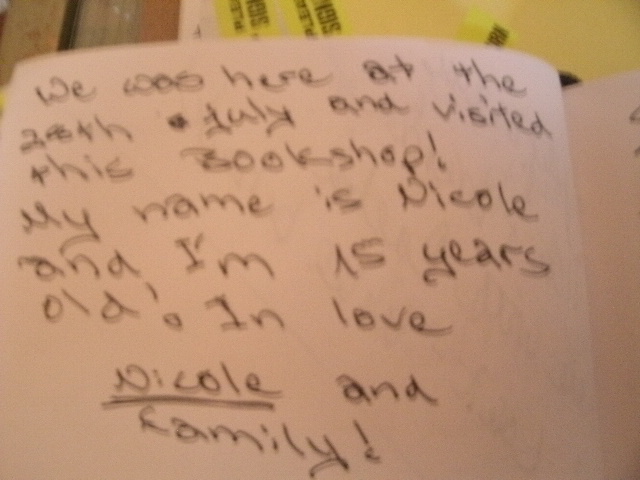 SIGN
PLEASE
SIGN
we was here at the
28th July and visited
this Bookshop!
My name is Nicole
and I'm 15 years
old! In love
Nicole and
family!